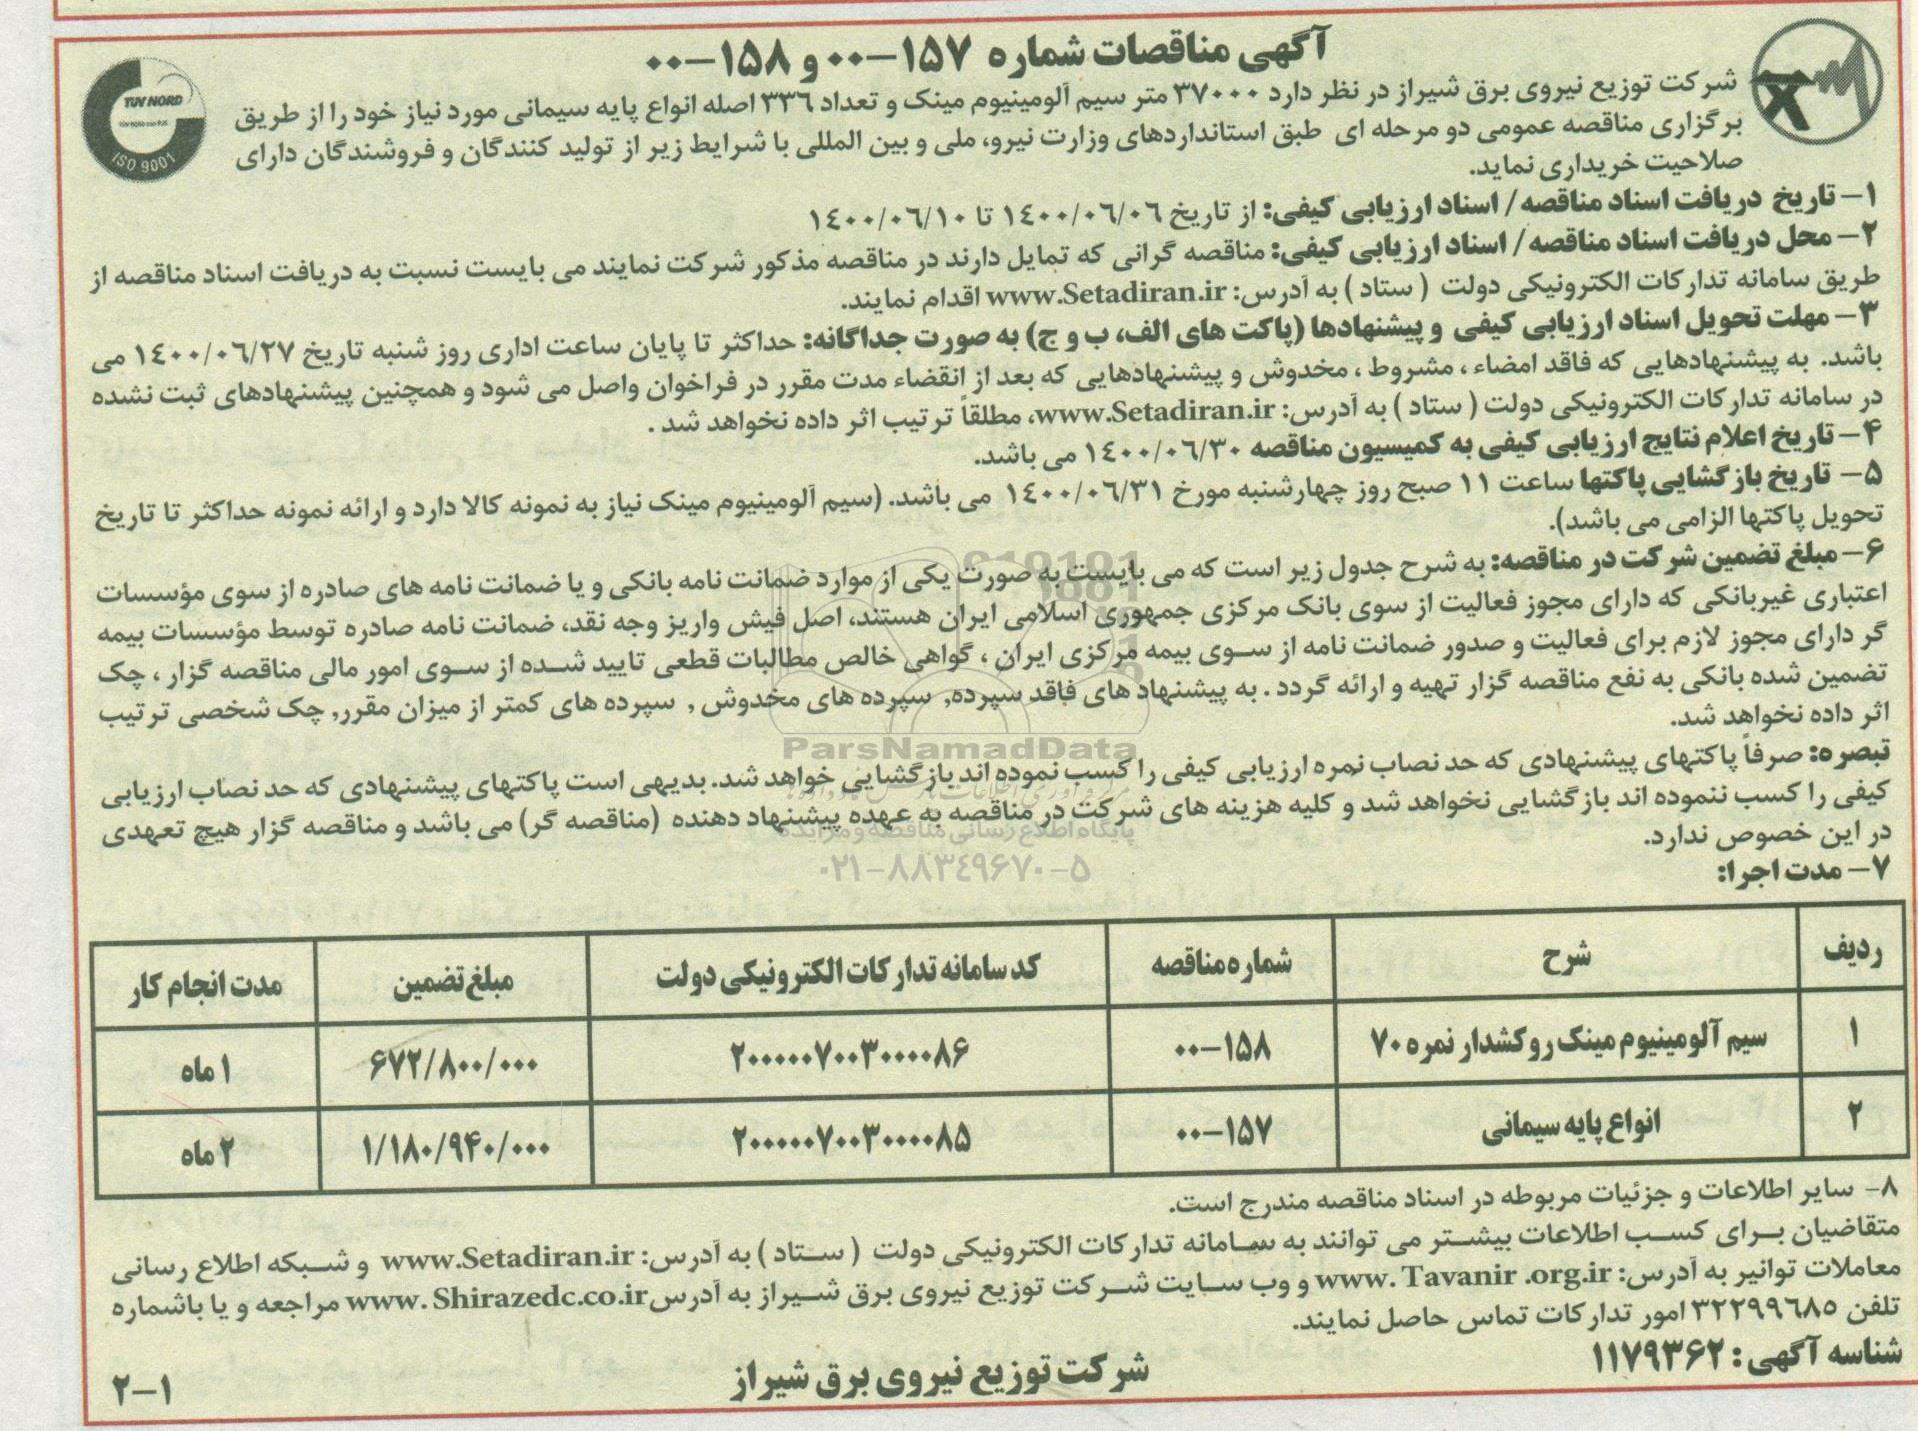 آگهی مناقصات شماره ۱۵۷-۰۰ و ۱۵۸-۰۰
TUV NORD
ISO 9001
شرکت توزیع نیروی برق شیراز در نظر دارد ۳۷۰۰۰ متر سیم آلومینیوم مینک و تعداد ۳۳۶ اصله انواع پایه سیمانی مورد نیاز خود را از طریق
برگزاری مناقصه عمومی دو مرحله ای طبق استانداردهای وزارت نیرو، ملی و بین المللی با شرایط زیر از تولید کنندگان و فروشندگان دارای
صلاحیت خریداری نماید.
۱- تاریخ دریافت اسناد مناقصه / اسناد ارزیابی کیفی: از تاریخ ۱۴۰۰/۰۶/۰۶ تا ۱۴۰۰/۰۶/۱۰
۲- محل دریافت اسناد مناقصه / اسناد ارزیابی کیفی: مناقصه گرانی که تمایل دارند در مناقصه مذکور شرکت نمایند می بایست نسبت به دریافت اسناد مناقصه از
طریق سامانه تدارکات الکترونیکی دولت ( ستاد ) به آدرس: www.Setadiran.ir اقدام نمایند.
۳- مهلت تحویل اسناد ارزیابی کیفی و پیشنهادها (پاکت های الف، ب و ج) به صورت جداگانه: حداکثر تا پایان ساعت اداری روز شنبه تاریخ ۱۴۰۰/۰۶/۲۷ می
باشد. به پیشنهادهایی که فاقد امضاء ، مشروط ، مخدوش و پیشنهادهایی که بعد از انقضاء مدت مقرر در فراخوان واصل می شود و همچنین پیشنهادهای ثبت نشده
در سامانه تدارکات الکترونیکی دولت ( ستاد ) به آدرس: www.Setadiran.ir، مطلقاً ترتیب اثر داده نخواهد شد .
۴- تاریخ اعلام نتایج ارزیابی کیفی به کمیسیون مناقصه ۱۴۰۰/۰۶/۳۰ می باشد.
۵- تاریخ بازگشایی پاکتها ساعت ۱۱ صبح روز چهارشنبه مورخ ۱۴۰۰/۰۶/۳۱ می باشد. (سیم آلومینیوم مینک نیاز به نمونه کالا دارد و ارائه نمونه حداکثر تا تاریخ
تحویل پاکتها الزامی می باشد).
۶- مبلغ تضمین شرکت در مناقصه: به شرح جدول زیر است که می بایست به صورت یکی از موارد ضمانت نامه بانکی و یا ضمانت نامه های صادره از سوی مؤسسات
اعتباری غیربانکی که دارای مجوز فعالیت از سوی بانک مرکزی جمهوری اسلامی ایران هستند، اصل فیش واریز وجه نقد، ضمانت نامه صادره توسط مؤسسات بیمه
گر دارای مجوز لازم برای فعالیت و صدور ضمانت نامه از سوی بیمه مرکزی ایران ، گواهی خالص مطالبات قطعی تایید شده از سوی امور مالی مناقصه گزار ، چک
تضمین شده بانکی به نفع مناقصه گزار تهیه و ارائه گردد . به پیشنهاد های فاقد سپرده, سپرده های مخدوش , سپرده های کمتر از میزان مقرر, چک شخصی ترتیب
اثر داده نخواهد شد.
ParsNamadData
تبصره: صرفاً پاکتهای پیشنهادی که حد نصاب نمره ارزیابی کیفی را کسب نموده اند بازگشایی خواهد شد. بدیهی است پاکتهای پیشنهادی که حد نصاب ارزیابی
کیفی را کسب ننموده اند بازگشایی نخواهد شد و کلیه هزینه های شرکت در مناقصه به عهده پیشنهاد دهنده (مناقصه گر) می باشد و مناقصه گزار هیچ تعهدی
پایگاه اطلاع رسانی مناقصه و مزایده
در این خصوص ندارد.
۰۲۱-۸۸۳۴۹۶۷۰-۵
۷- مدت اجرا:
ردیف شرح شماره مناقصه کد سامانه تدارکات الکترونیکی دولت مبلغ تضمین مدت انجام کار
۱ سیم آلومینیوم مینک روکشدار نمره ۷۰ ۱۵۸-۰۰ ۲۰۰۰۰۰۷۰۰۳۰۰۰۰۸۶ ۶۷۲/۸۰۰/۰۰۰ ۱ ماه
۲ انواع پایه سیمانی ۱۵۷-۰۰ ۲۰۰۰۰۰۷۰۰۳۰۰۰۰۸۵ ۱/۱۸۰/۹۴۰/۰۰۰ ۲ ماه
۸- سایر اطلاعات و جزئیات مربوطه در اسناد مناقصه مندرج است.
متقاضیان برای کسب اطلاعات بیشتر می توانند به سامانه تدارکات الکترونیکی دولت ( ستاد ) به آدرس: www.Setadiran.ir و شبکه اطلاع رسانی
معاملات توانیر به آدرس: www. Tavanir .org.ir و وب سایت شرکت توزیع نیروی برق شیراز به آدرس www. Shirazedc.co.ir مراجعه و یا باشماره
تلفن ۳۲۲۹۹۶۸۵ امور تدارکات تماس حاصل نمایند.
شناسه آگهی : ۱۱۷۹۳۶۲
شرکت توزیع نیروی برق شیراز
۲-۱